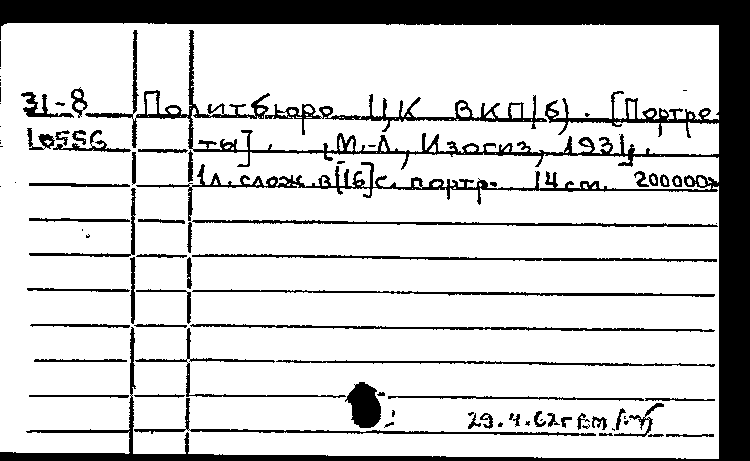 31-8 Политбюро ЦК ВКП(б). [Портре-
10556 ты]. [М.-Л., Изогиз, 1931].
1 л. слож. в [16] с. портр. 14 см. 200000э
29.4.62г